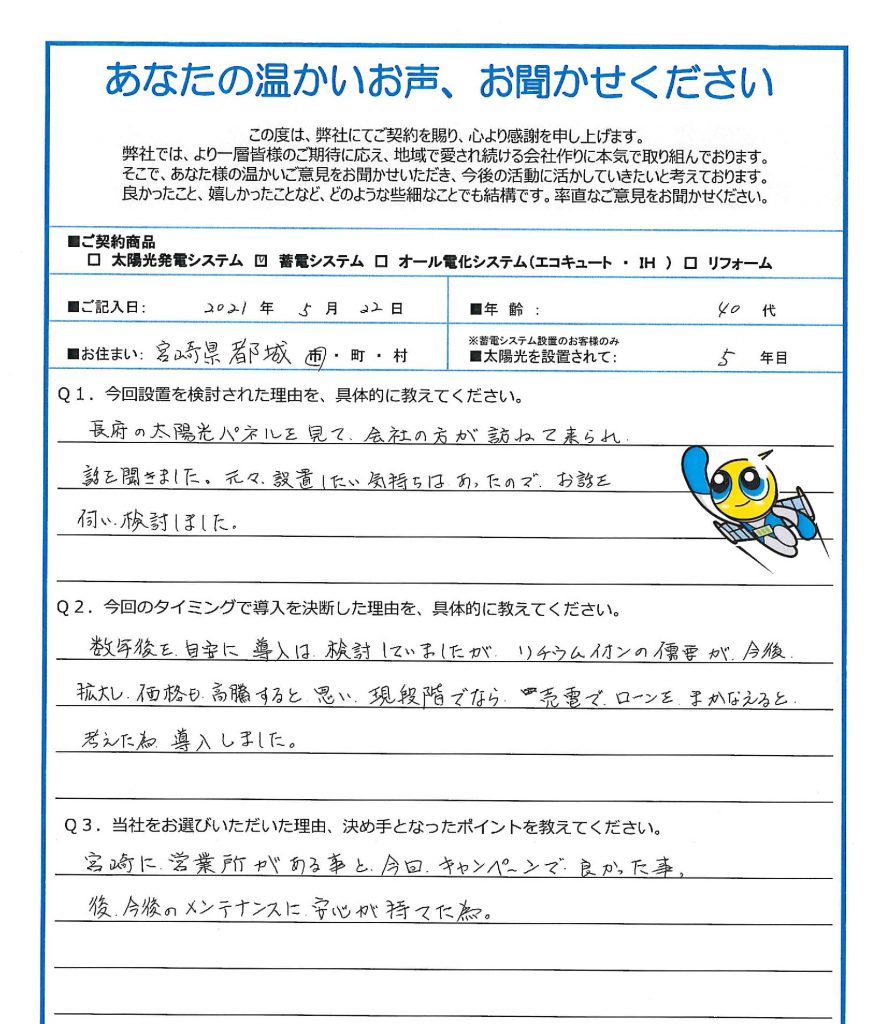 あなたの温かいお声、お聞かせください
この度は、弊社にてご契約を賜り、心より感謝を申し上げます。
弊社では、より一層皆様のご期待に応え、地域で愛され続ける会社作りに本気で取り組んでおります。
そこで、あなた様の温かいご意見をお聞かせいただき、今後の活動に活かしていきたいと考えております。
良かったこと、嬉しかったことなど、どのような些細なことでも結構です。率直なご意見をお聞かせください。
■ご契約商品
☐ 太陽光発電システム ☑ 蓄電システム ☐ オール電化システム(エコキュート ・ IH ) ☐ リフォーム
■ご記入日: 2021 年 5 月 22 日
■年 齢 : 40 代
■お住まい: 宮崎県都城 市・町・村
※蓄電システム設置のお客様のみ
■太陽光を設置されて: 5 年目
Q1．今回設置を検討された理由を、具体的に教えてください。
長府の太陽光パネルを見て、会社の方が訪ねて来られ、
話を聞きました。元々、設置したい気持ちは、あったので、お話を
伺い、検討しました。
Q2．今回のタイミングで導入を決断した理由を、具体的に教えてください。
数年後を、目安に導入は、検討していましたが、リチウムイオンの需要が、今後、
拡大し、価格も高騰すると思い、現段階でなら、売電で、ローンを、まかなえると、
考えた為、導入しました。
Q3．当社をお選びいただいた理由、決め手となったポイントを教えてください。
宮崎に、営業所がある事と、今回、キャンペーンで、良かった事。
後、今後のメンテナンスに、安心が持てた為。